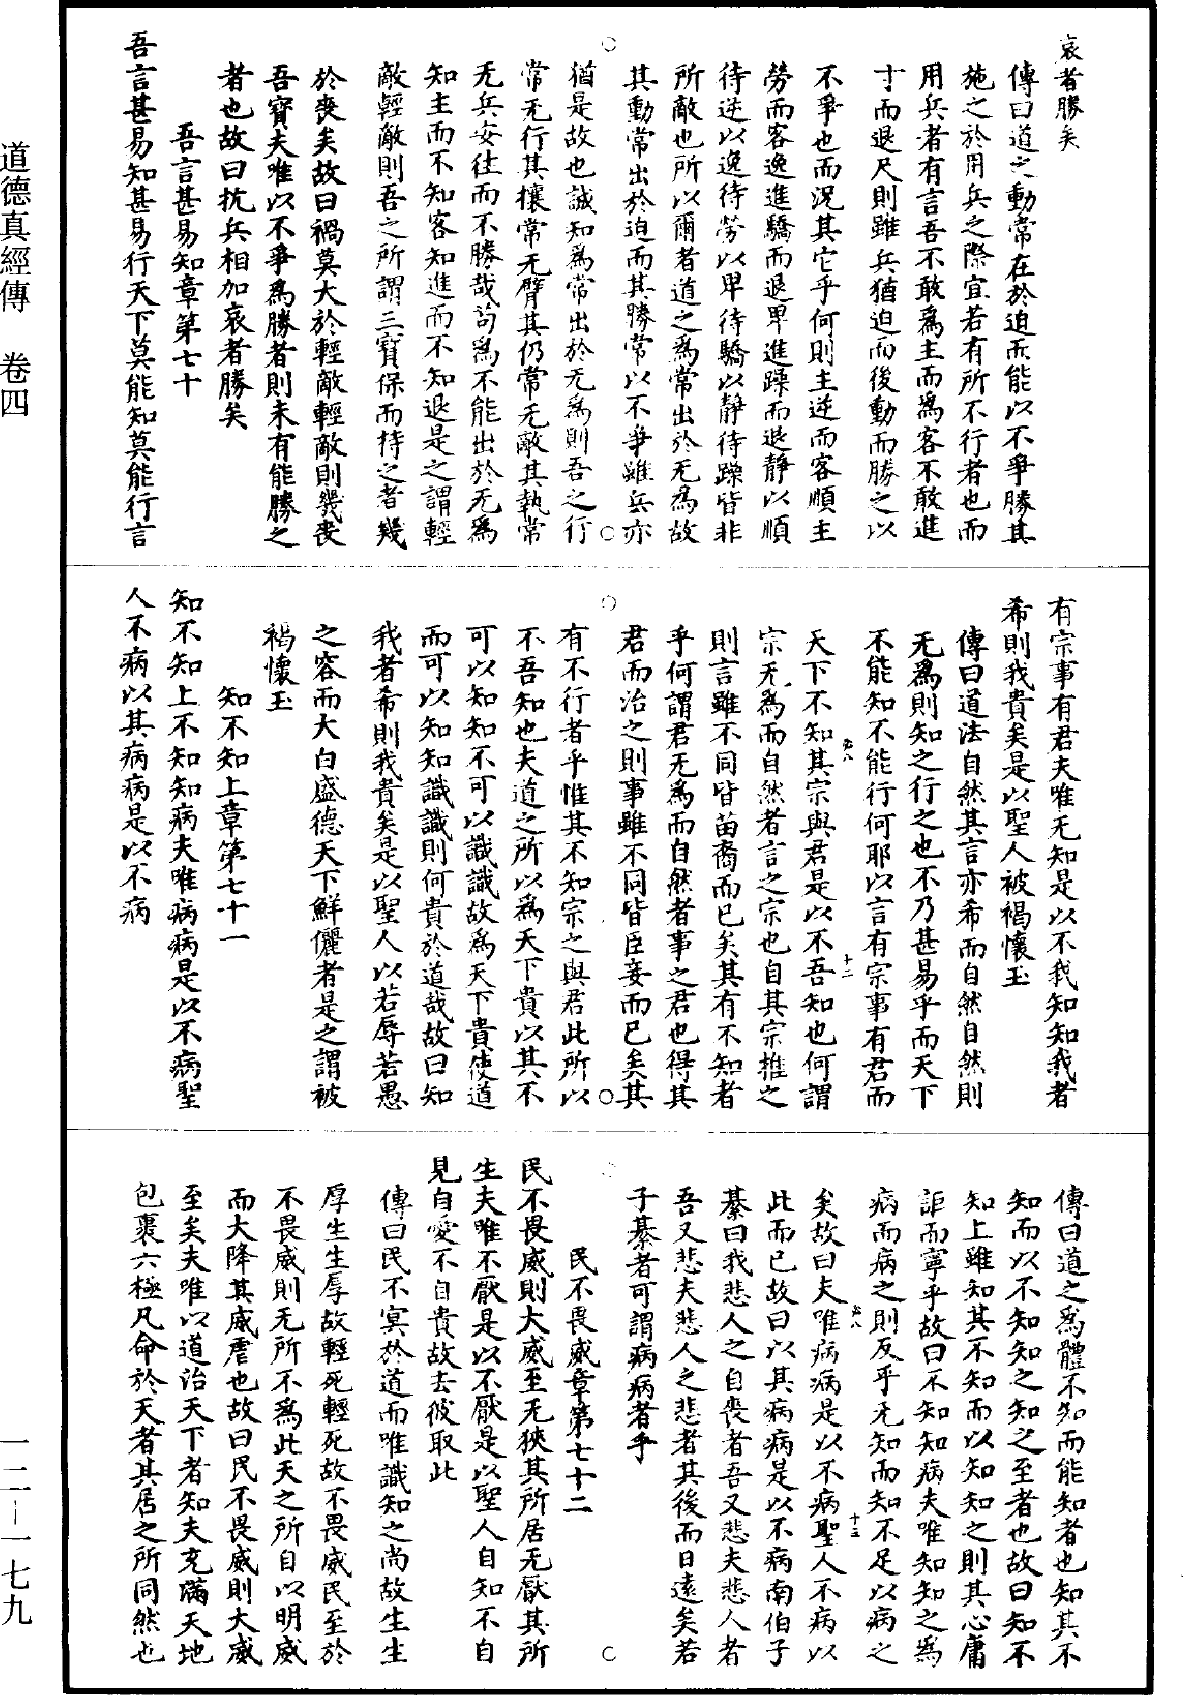 哀者勝矣
傳曰道之動常在於迫而能以不爭勝其
施之於用兵之際宜若有所不行者也而
用兵者有言吾不敢為主而為客不敢進
寸而退尺則雖兵猶迫而後動而勝之以
不爭也而況其它乎何則主逆而客順主
勞而客逸進驕而退卑進躁而退靜以順
待逆以逸待勞以卑待驕以靜待躁皆非
所敵也所以爾者道之為常出於无為故
其動常出於迫而其勝常以不爭雖兵亦
猶是故也誠知為常出於无為則吾之行
常无行其攘常无臂其仍常无敵其執常
无兵安往而不勝哉茍為不能出於无為
知主而不知客知進而不知退是之謂輕
敵輕敵則吾之所謂三寶保而持之者幾
於喪矣故曰禍莫大於輕敵輕敵則幾喪
吾寶夫唯以不爭為勝者則未有能勝之
者也故曰抗兵相加哀者勝矣
吾言甚易知章第七十
吾言甚易知甚易行天下莫能知莫能行言
有宗事有君夫唯无知是以不我知知我者
希則我貴矣是以聖人被褐懷玉
傳曰道法自然其言亦希而自然自然則
无為則知之行之也不乃甚易乎而天下
不能知不能行何耶以言有宗事有君而
天下不知其宗與君是以不吾知也何謂
宗无為而自然者言之宗也自其宗推之
則言雖不同皆苗裔而已矣其有不知者
乎何謂君无為而自然者事之君也得其
君而治之則事雖不同皆臣妾而已矣其
有不行者乎惟其不知宗之與君此所以
不吾知也夫道之所以為天下貴以其不
可以知知不可以識識故為天下貴使道
而可以知知識識則何貴於道哉故曰知
我者希則我貴矣是以聖人以若辱若愚
之容而大白盛德天下鮮儷者是之謂被
褐懷玉
知不知上章第七十一
知不知上不知知病夫唯病病是以不病聖
人不病以其病病是以不病
傳曰道之為體不知而能知者也知其不
知而以不知知之知之至者也故曰知不
知上雖知其不知而以知知之則其心庸
詎而寧乎故曰不知知病夫唯知知之為
病而病之則反乎无知而知不足以病之
矣故曰夫唯病病是以不病聖人不病以
此而已故曰以其病病是以不病南伯子
綦曰我悲人之自喪者吾又悲夫悲人者
吾又悲夫悲人之悲者其後而日遠矣若
子綦者可謂病病者乎
民不畏威章第七十二
民不畏威則大威至无狹其所居无厭其所
生夫唯不厭是以不厭是以聖人自知不自
見自愛不自貴故去彼取此
傳曰民不冥於道而唯識知之尚故生生
厚生生厚故輕死輕死故不畏威民至於
不畏威則无所不為此天之所自以明威
而大降其威虐也故曰民不畏威則大威
至矣夫唯以道治天下者知夫充滿天地
包裹六極凡命於天者其居之所同然也
道德真經傳 卷四
一二－一七九